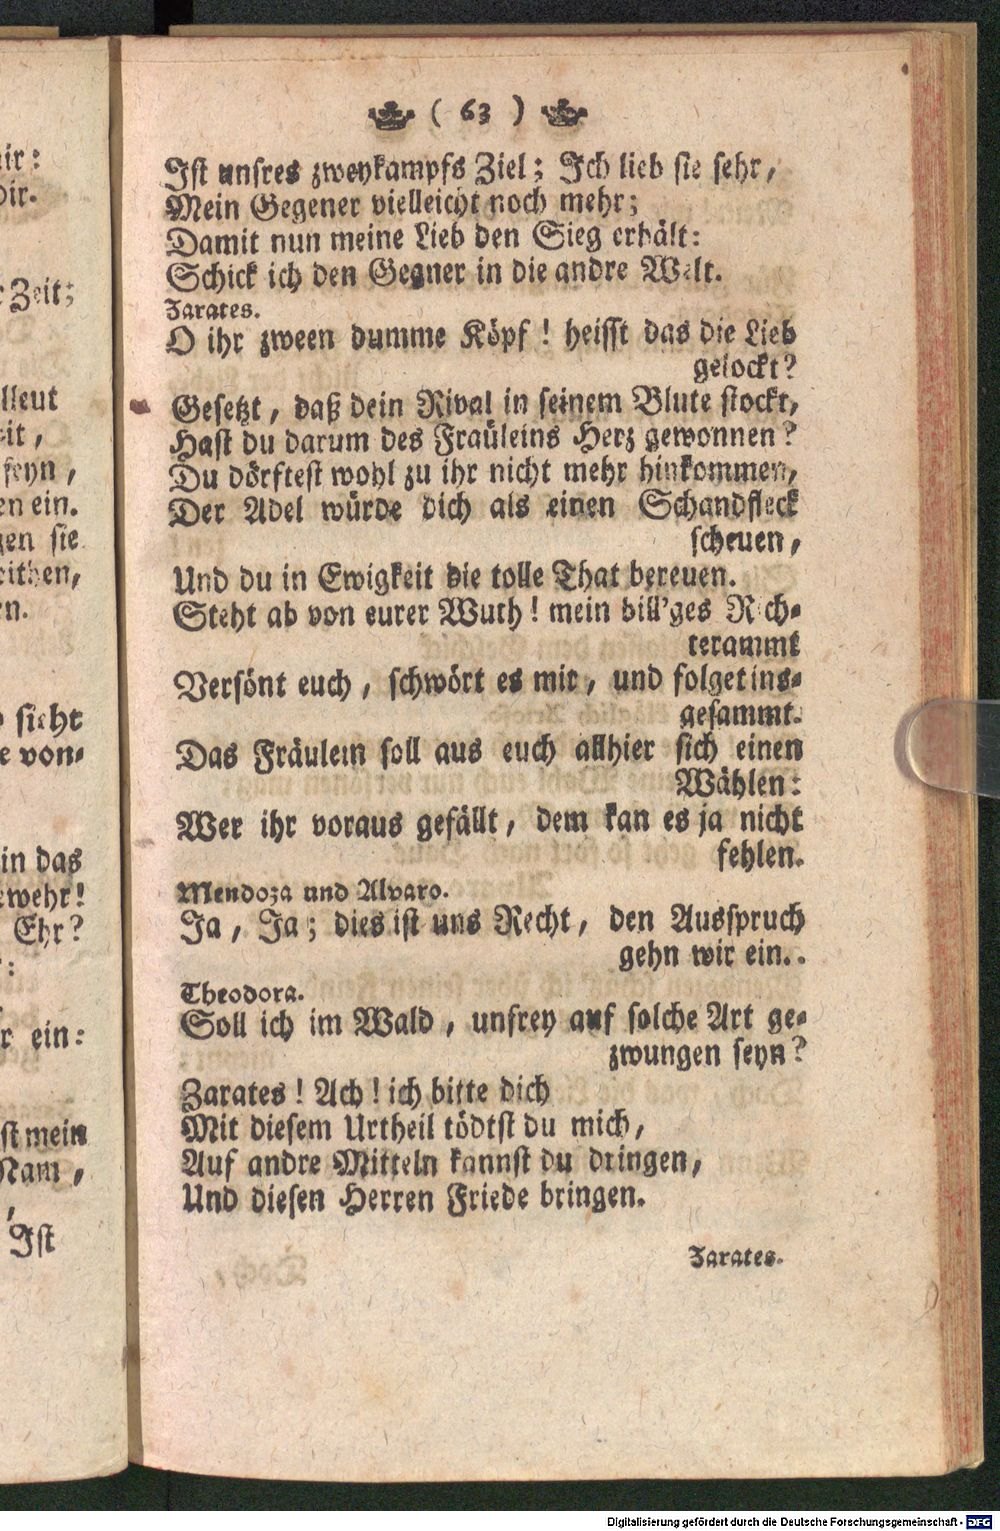 ir:
ir.
Zeit;
lleut
it,
seyn,
en ein.
gen sie
eithen,
en.
sieht
e von-
in das
ewehr!
Ehr?
:
r ein:
st mein
Nam,
,
Ist
( 63 )
Ist unsres zweykampfs Ziel; Ich lieb sie sehr,
Mein Gegener vielleicht noch mehr;
Damit nun meine Lieb den Sieg erhält:
Schick ich den Gegner in die andre Welt.
Zarates.
O ihr zween dumme Köpf! heisst das die Lieb
gelockt?
Gesetzt, daß dein Rival in seinem Blute stockt,
Hast du darum des Fräuleins Herz gewonnen?
Du dörftest wohl zu ihr nicht mehr hinkommen,
Der Adel würde dich als einen Schandfleck
scheuen,
Und du in Ewigkeit die tolle That bereuen.
Steht ab von eurer Wuth! mein bill'ges Rich-
terammt
Versönt euch, schwört es mit, und folget ins-
gesammt.
Das Fräulein soll aus euch allhier sich einen
Wählen:
Wer ihr voraus gefällt, dem kan es ja nicht
fehlen.
Mendoza und Alvaro.
Ja, Ja; dies ist uns Recht, den Ausspruch
gehn wir ein..
Theodora.
Soll ich im Wald, unfrey auf solche Art ge-
zwungen seyn?
Zarates! Ach! ich bitte dich
Mit diesem Urtheil tödtst du mich,
Auf andre Mitteln kannst du dringen,
Und diesen Herren Friede bringen.
Zarates.
Digitalisierung gefördert durch die Deutsche Forschungsgemeinschaft - DFG